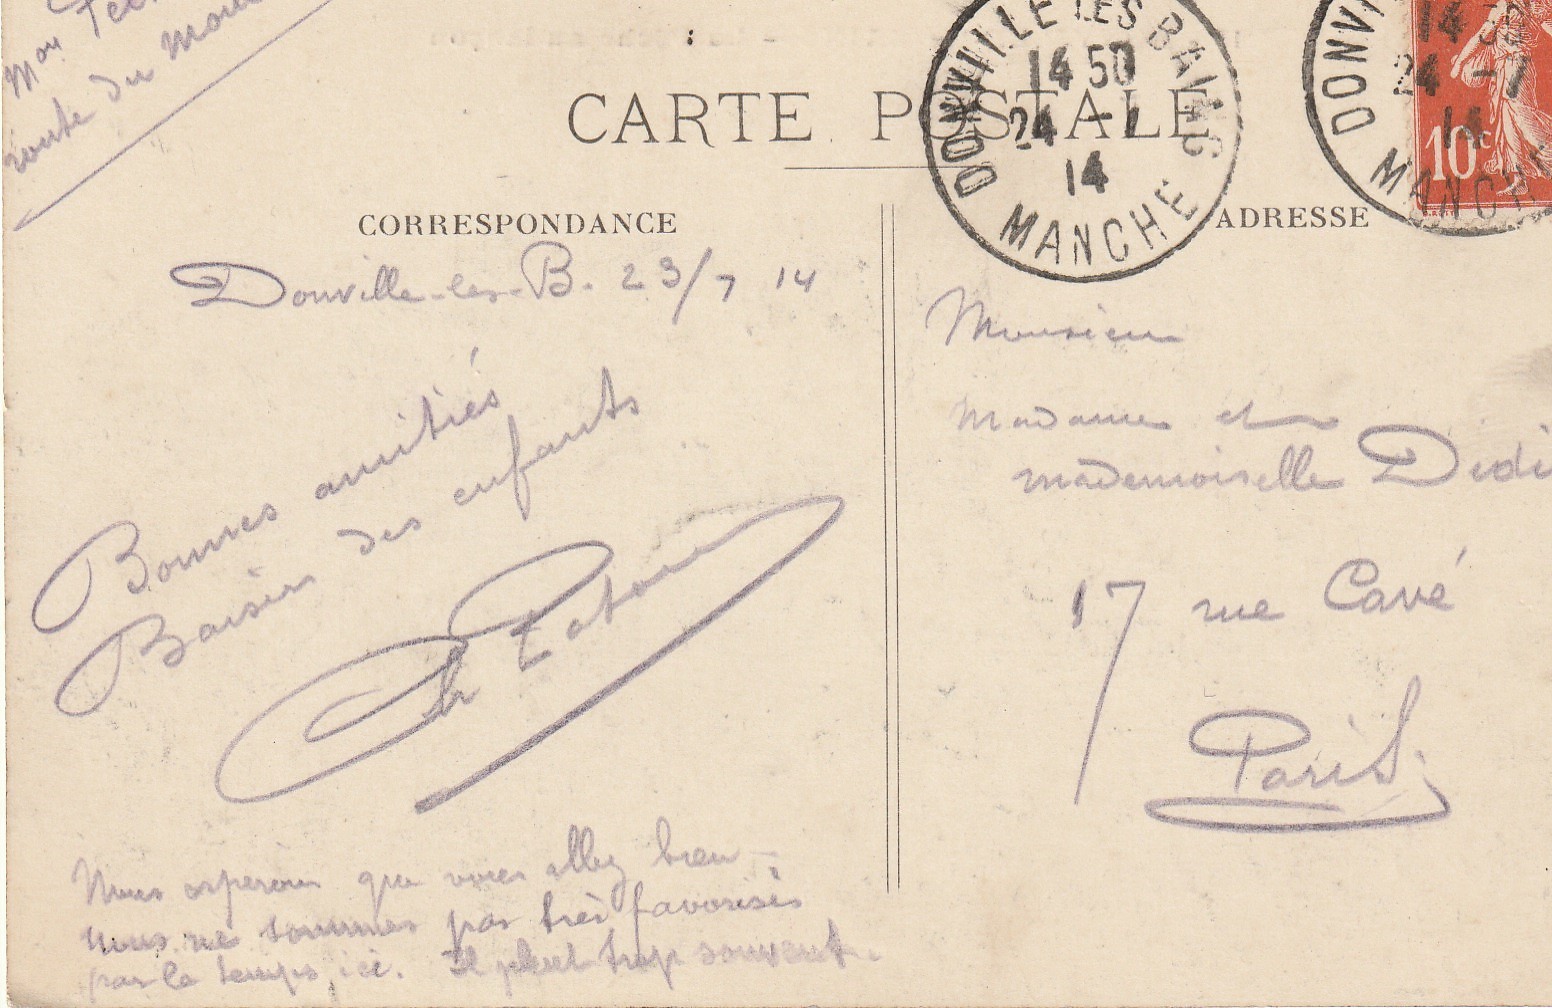 route du
CARTE POSTALE
CORRESPONDANCE
ADRESSE
DONVILLE LES BAINS
14 50
24 -7
14
MANCHE
DONVI
14 50
24 -7
14
MANCHE
10c
Donville-les-B. 23/7 14
Bonnes amitiés
Baisers des enfants
Monsieur
Madame et
Mademoiselle Didi
17 rue Cavé
Paris
Nous esperons que vous allez bien -
Nous ne sommes pas très favorisés
par le temps, ici. Il pleut trop souvent.